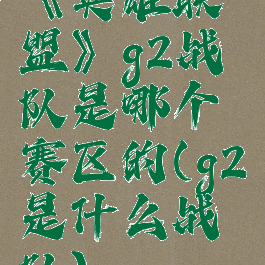 《英雄联
盟》g2战
队是哪个
赛区的(g2
是什么战
队)